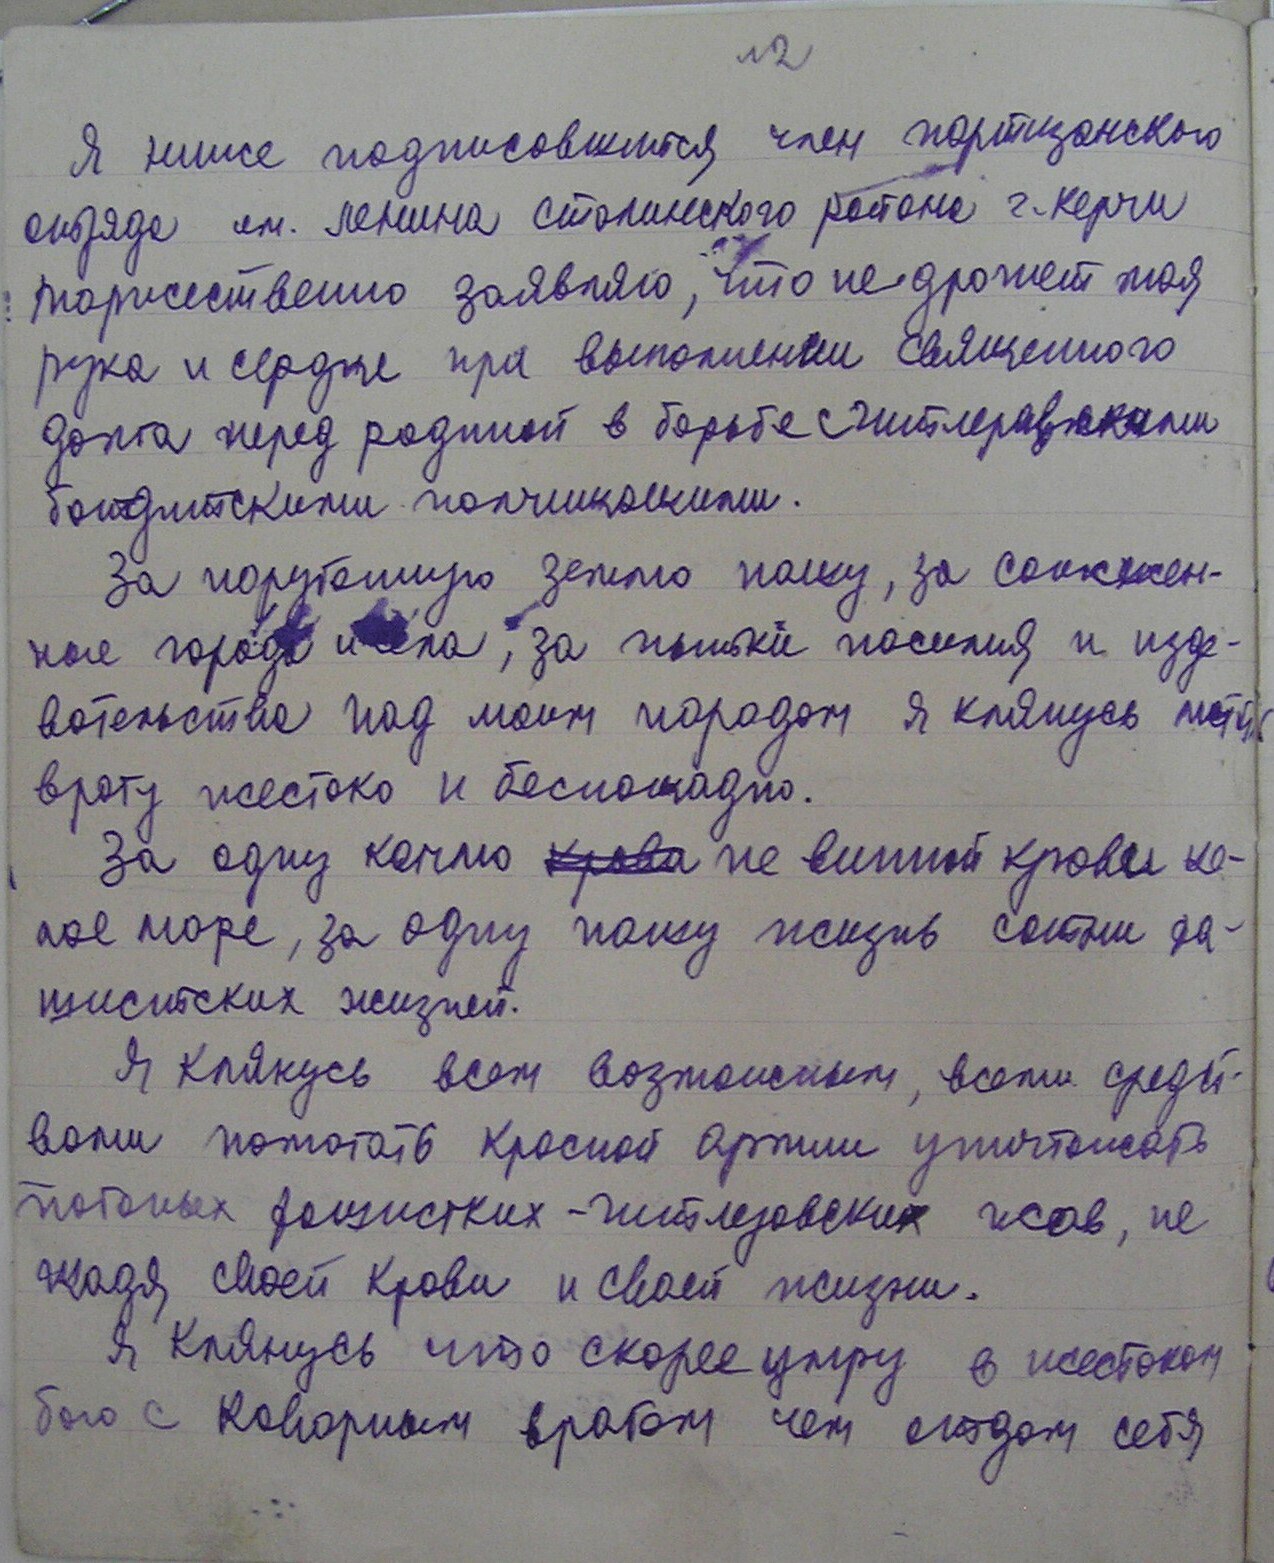 л2
Я ниже подписовшийся член партизанского
отряда им. Ленина Сталинского района г. Керчи
торжественно заявляю, что не дрожет моя
рука и сердце при выполнении священного
долга перед родиной в борьбе с гитлеравскими
бандитскими полчищащими.
За порутанную землю нашу, за сожжен-
ные города и села, за пытки насилия и изде-
вательства над моим народом я клянусь мстить
врагу жестоко и беспощадно.
За одну каплю крови не винной крови це-
лое море, за одну нашу жизнь сотни фа-
шиситских жизней.
Я клянусь всем возможным, всеми средст-
вами помогать Красной Армии уничтожать
поганых фашистких-гитлеровских псов, не
жадя своей крови и своей жизни.
Я клянусь что скорее умру в жестоком
бою с коварным врагом чем отдам себя